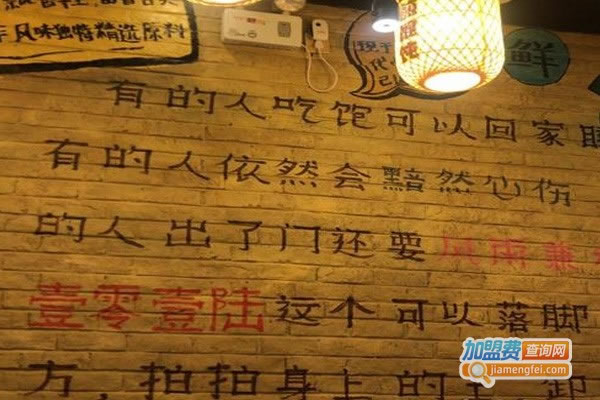 风味独特精选原料
鲜
有的人吃饱可以回家
有的人依然会黯然心伤
的人出了门还要风雨兼
壹零壹陆这个可以落脚
方，拍拍身上的土，卸
加盟费查询网
jiamengfei.com